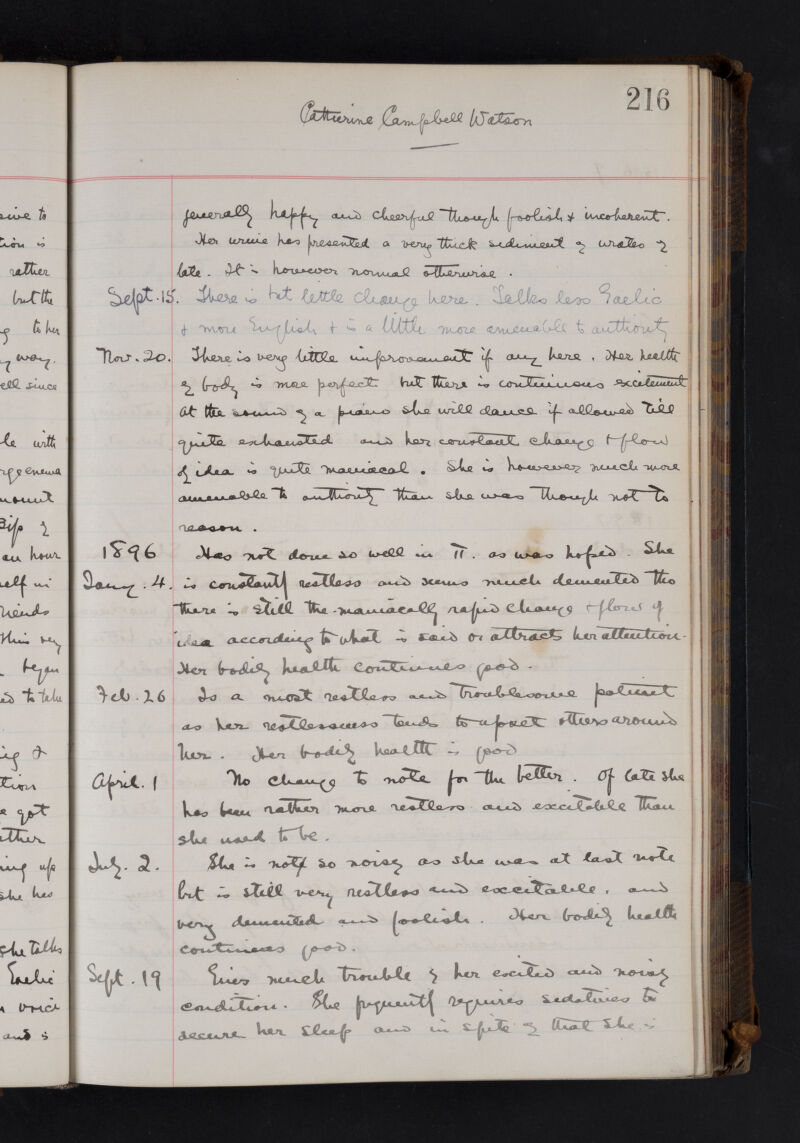 216
Catherine Campbell Watson
sive to
tion is
rather
but the
to her
way.
ell since
le with
ge enema
mount
an hour
elf in
riends
this very
began
ed to take
ing &
tion
e got
ther
ing up
she has
she talks
Gaelic
voice
and is
generally happy and cheerful though foolish & incoherent.
Her urine has presented a very thick sediment of urates of
late. It is however normal otherwise.
Sept. 15. There is but little change here. Talks less Gaelic
& more English & is a little more amenable to authority
Nov. 20. There is very little improvement if any here. Her health
of body is more perfect but there is continuous excitement
At the sound of a piano she will dance if allowed till
quite exhausted and her constant change & flow
of idea is quite maniacal. She is however much more
amenable to authority than she was though not to
reason.
1896 Has not done so well in II. as was hoped. She
Jany. 4. is constantly restless and seems much demented tho
there is still the maniacally rapid change & flow of
idea according to what is said or attracts her attention.
Her bodily health continues good.
Feb. 26 Is a most restless and troublesome patient
as her restlessness tends to upset others around
her. Her bodily health is good
April. 1 No change to note for the better. Of late she
has been rather more restless and excitable than
she used to be.
July. 2. She is not so noisy as she was at last note
but is still very restless and excitable, and
very demented and foolish. Her bodily health
continues good.
Sept. 19 Gives much trouble by her excited and noisy
condition. She frequently requires sedatives to
secure her sleep and in spite of that she is